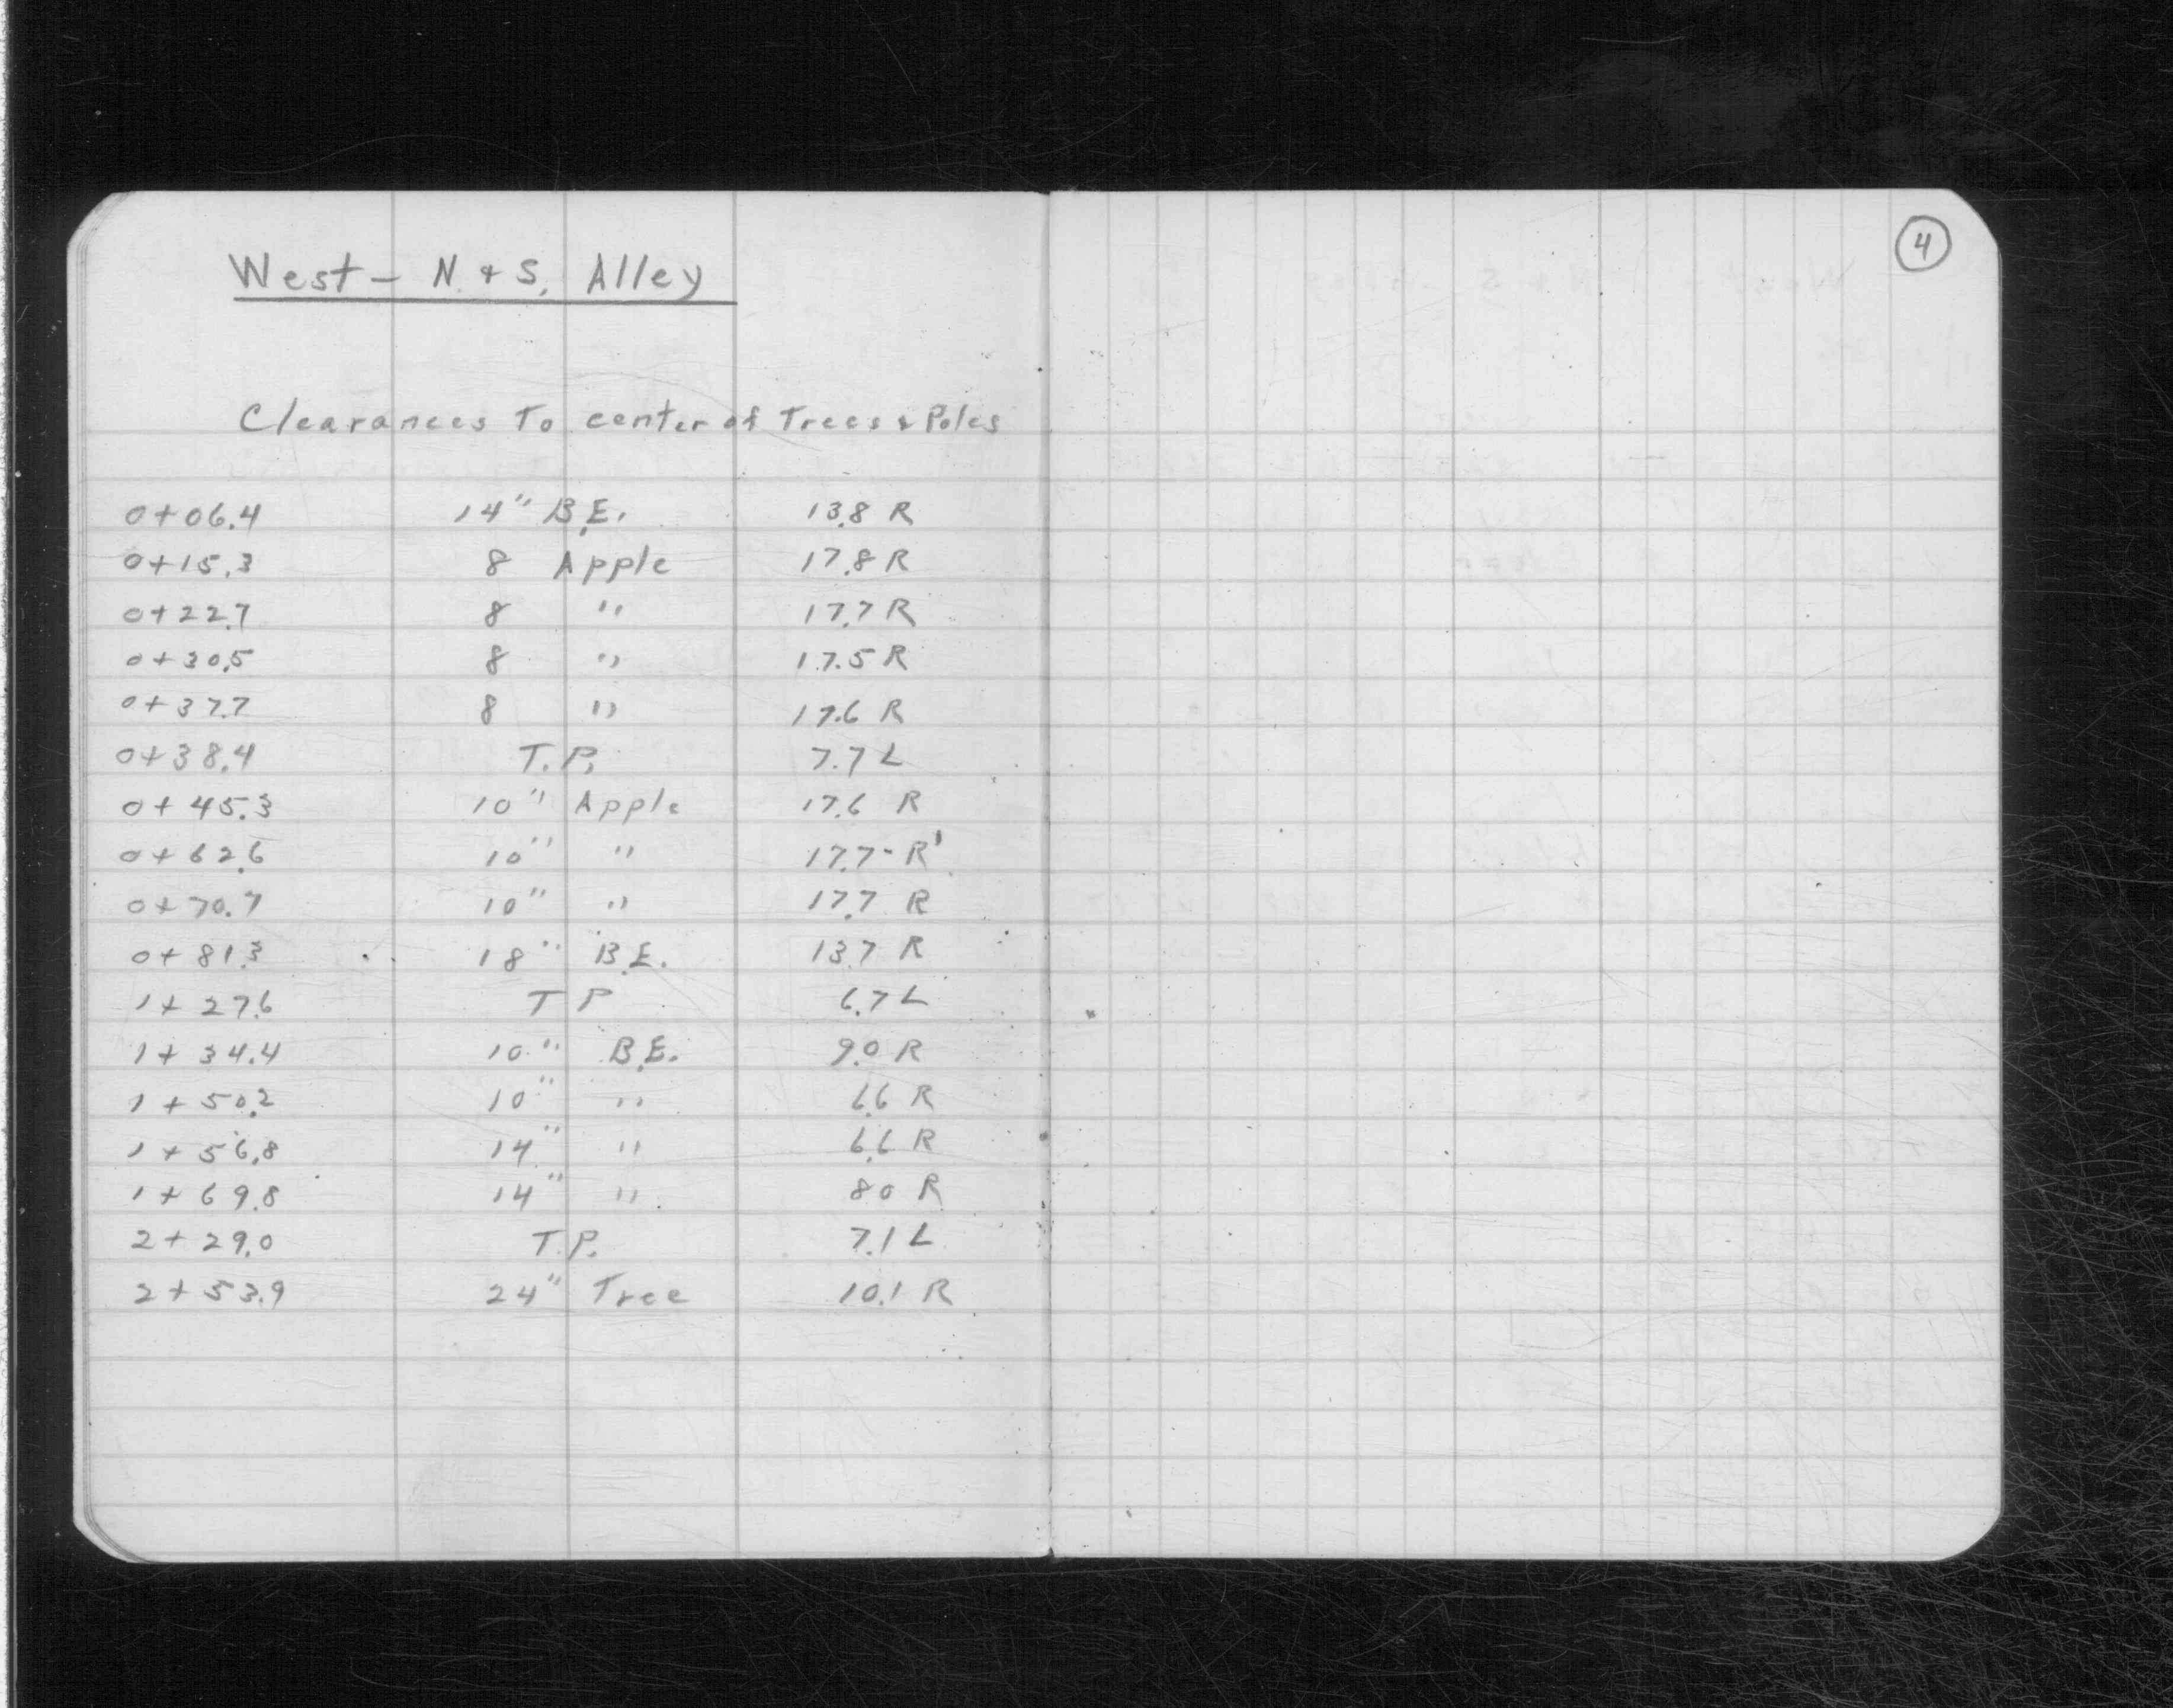 4
West - N. & S. Alley
Clearances To center of Trees & Poles
0+06.4 14" B.E. 13.8 R
0+15.3 8 Apple 17.8 R
0+22.7 8 " 17.7 R
0+30.5 8 " 17.5 R
0+37.7 8 " 17.6 R
0+38.4 T.P. 7.7 L
0+45.3 10" Apple 17.6 R
0+62.6 10" " 17.7 - R'
0+70.7 10" " 17.7 R
0+81.3 18" B.E. 13.7 R
1+27.6 T P 6.7 L
1+34.4 10" B.E. 9.0 R
1+50.2 10" " 6.6 R
1+56.8 14" " 6.6 R
1+69.8 14" " 80 R
2+29.0 T.P. 7.1 L
2+53.9 24" Tree 10.1 R